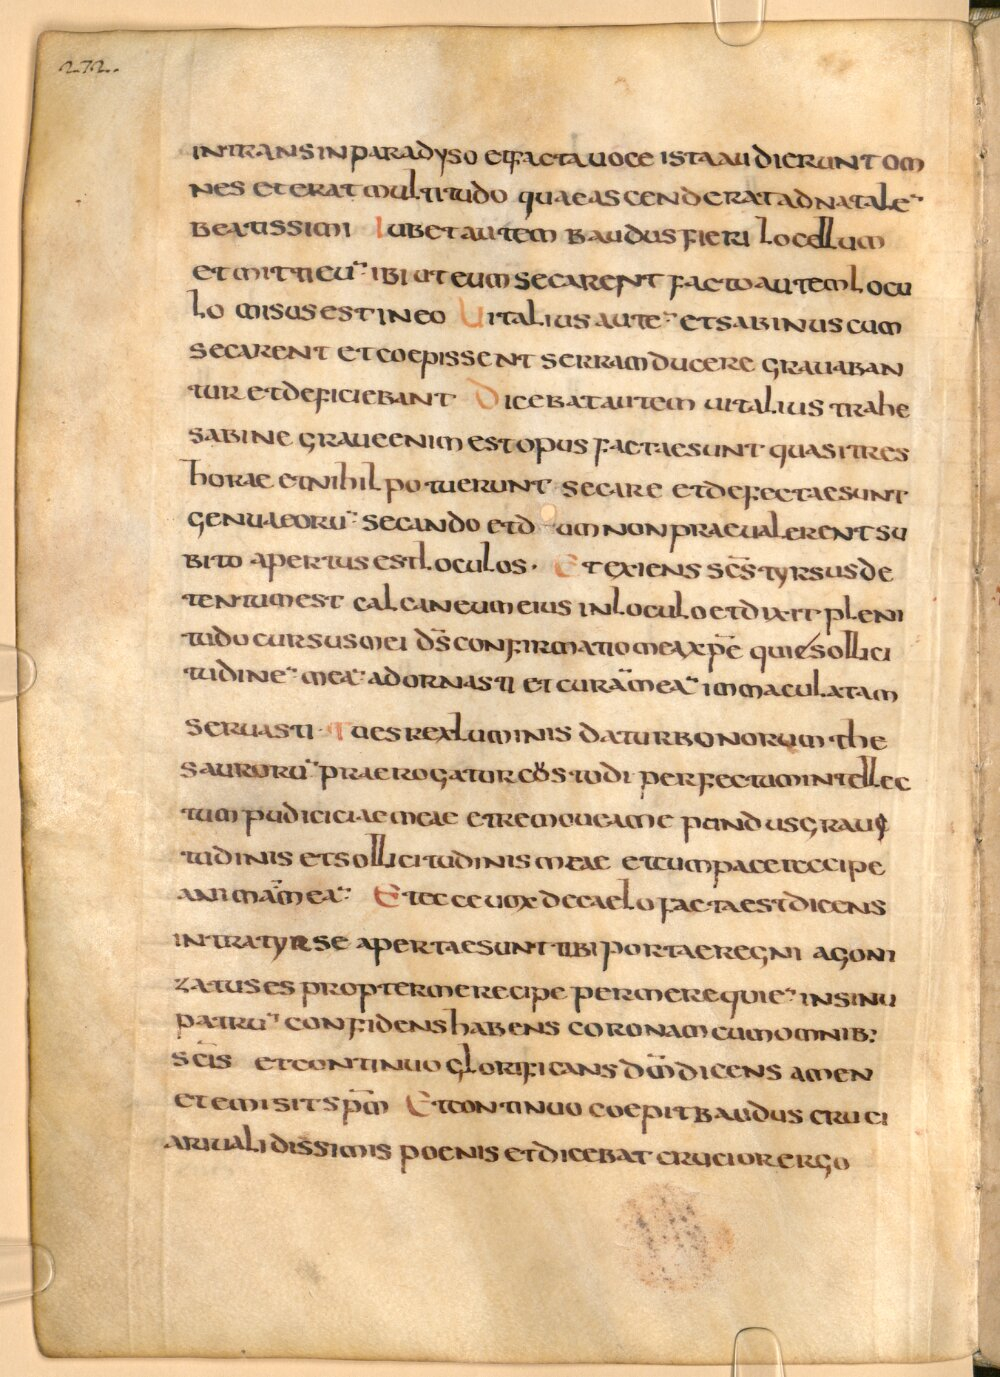 272.
intrans in paradyso et facta uoce ista audierunt om
nes et erat multitudo quae ascenderat ad natale¨
beatissimi Iubet autem baudus fieri locellum
et mitti eu¨ ibi ut eum secarent facto autem locu
lo misus est in eo Uitalius aute¨ et sabinus cum
secarent et coepissent serram ducere grauaban
tur et deficiebant Dicebat autem uitalius trahe
sabine graue enim est opus factae sunt quasi tres
horae et nihil potuerunt secare et defectae sunt
genua eoru¨ secando et d um non praeualerent su
bito apertus est loculos. Et exiens scs̄ tyrsus de
tentum est calcaneum eius in loculo et dixit pleni
tudo cursus mei ds̄ confirmatio mea xpē qui et solli ci
tudine¨ mea¨ adornasti et cura¨ mea¨ immaculatam
seruasti Tu es rex luminis datur bonorum the
sauroru¨ praerogatur custodi perfectum intellec
tum pudiciciae meae et remoue a me pondus graui
tudinis et sollicitudinis meae et cum pace recipe
anima¨ mea¨ Et ecce uox de caelo facta est dicens
intra tyrse apertae sunt tibi portae regni agoni
zatus es propter me recipe per me requie¨ in sinu
patru¨ confidens habens coronam cum omnib:
scīs et continuo glorificans dm̄ dicens amen
et emisit spm̄ Et continuo coepit baudus cruci
ari ualidissimis poenis et dicebat crucior ergo